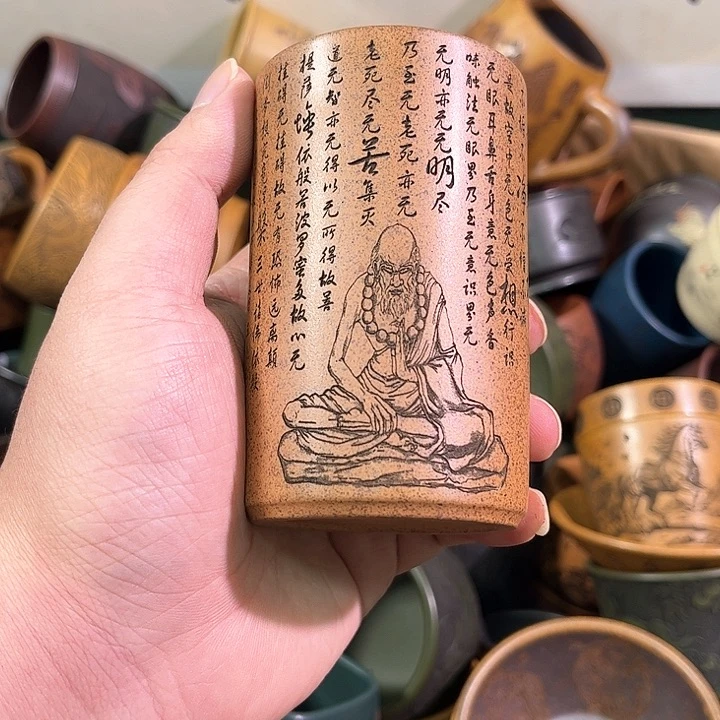 是故空中无色无受想行识
无眼耳鼻舌身意无色声香
味触法无眼界乃至无意识界无
无明亦无无明尽
乃至无老死亦无
老死尽无苦集灭
道无智亦无得以无所得故菩
提萨埵依般若波罗蜜多故心无
挂碍无挂碍故无有恐怖远离颠
三世诸佛依般